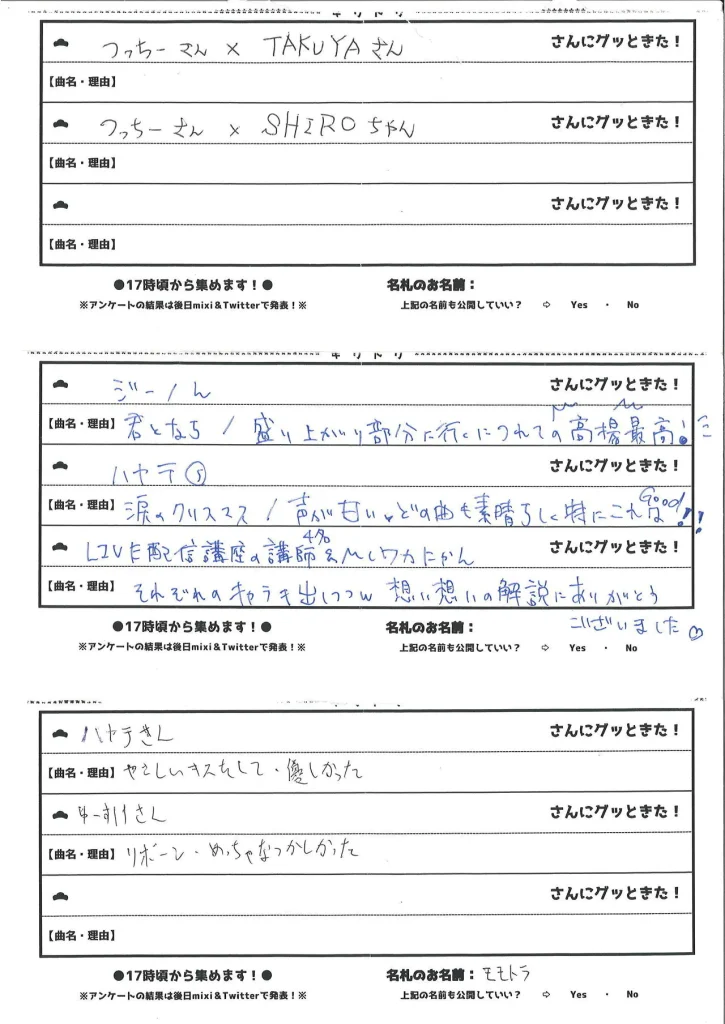 キリトリ
つっちーさん × TAKUYAさん さんにグッときた！
【曲名・理由】
つっちーさん × SHIROちゃん さんにグッときた！
【曲名・理由】
さんにグッときた！
【曲名・理由】
●17時頃から集めます！● 名札のお名前：
※アンケートの結果は後日mixi＆Twitterで発表！※ 上記の名前も公開していい？ ⇨ Yes ・ No
キリトリ
ジーノん さんにグッときた！
【曲名・理由】 君となら / 盛り上がり部分に行くにつれての高揚最高！
ハヤテ⑤ さんにグッときた！
【曲名・理由】 涙のクリスマス / 声が甘い どの曲も素晴らしく特にこれはGood!!
LIVE配信講座の講師4名&MCワカにゃん さんにグッときた！
【曲名・理由】 それぞれのキャラを出しつつw 想い想いの解説にありがとう
ございました♡
●17時頃から集めます！● 名札のお名前：
※アンケートの結果は後日mixi＆Twitterで発表！※ 上記の名前も公開していい？ ⇨ Yes ・ No
ハヤテさん さんにグッときた！
【曲名・理由】 やさしいキスをして・優しかった
ゆーすけさん さんにグッときた！
【曲名・理由】 リボーン・めっちゃなつかしかった
さんにグッときた！
【曲名・理由】
●17時頃から集めます！● 名札のお名前：モモトラ
※アンケートの結果は後日mixi＆Twitterで発表！※ 上記の名前も公開していい？ ⇨ Yes ・ No